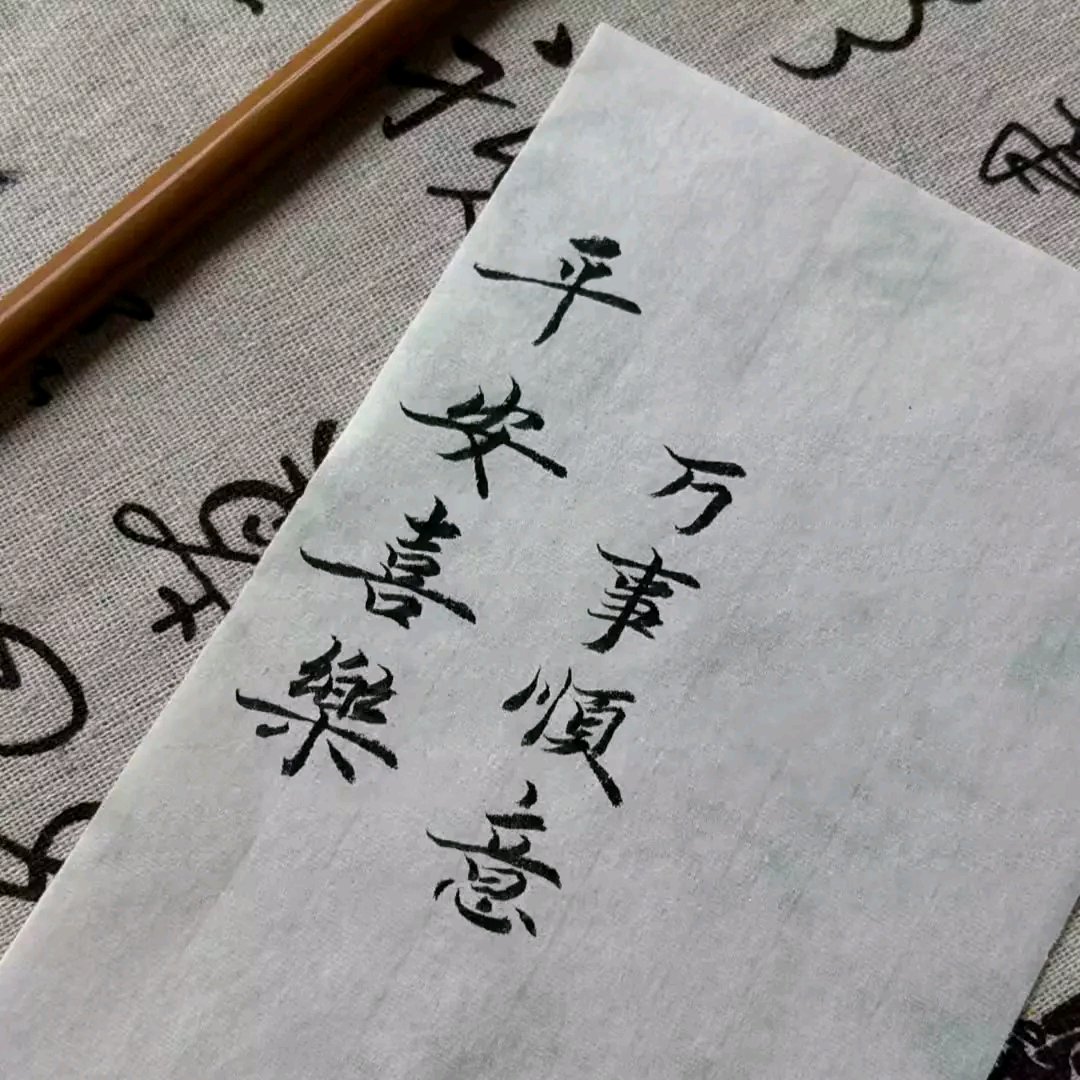 平安喜樂
万事順意